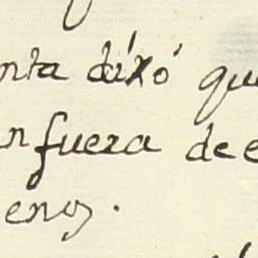 nta dixó que
n fuera de e
enos.